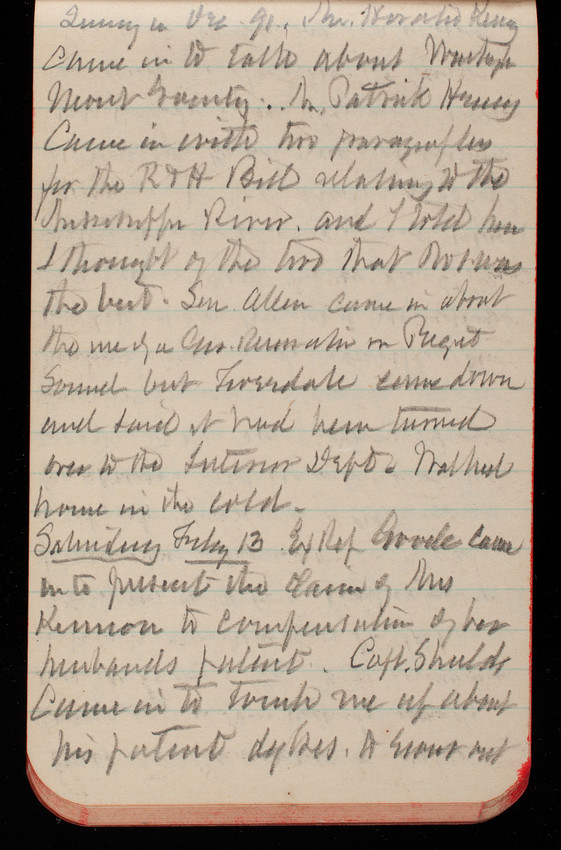 in Dec 90. Mr. Horatio King
came in to talk about
Mount County. Mr. Patrick
Came in with two paragraphs
for the R & H Bill relating to the
Mississippi River. and I told him
I thought of the two that No 1 was
the best. Sen Allen came in about
the use of a Gov. Reservation on Puget
Sound but Loversdale came down
and said it had been turned
over to the Interior Dept. Walked
home in the cold.
Saturday Feby 13 Ex Rep Goode came
in to present the claim of Mrs
Kennon to compensation of her
husbands patent. Capt. Shields
Came in to touch me up about
his patent dykes. to out